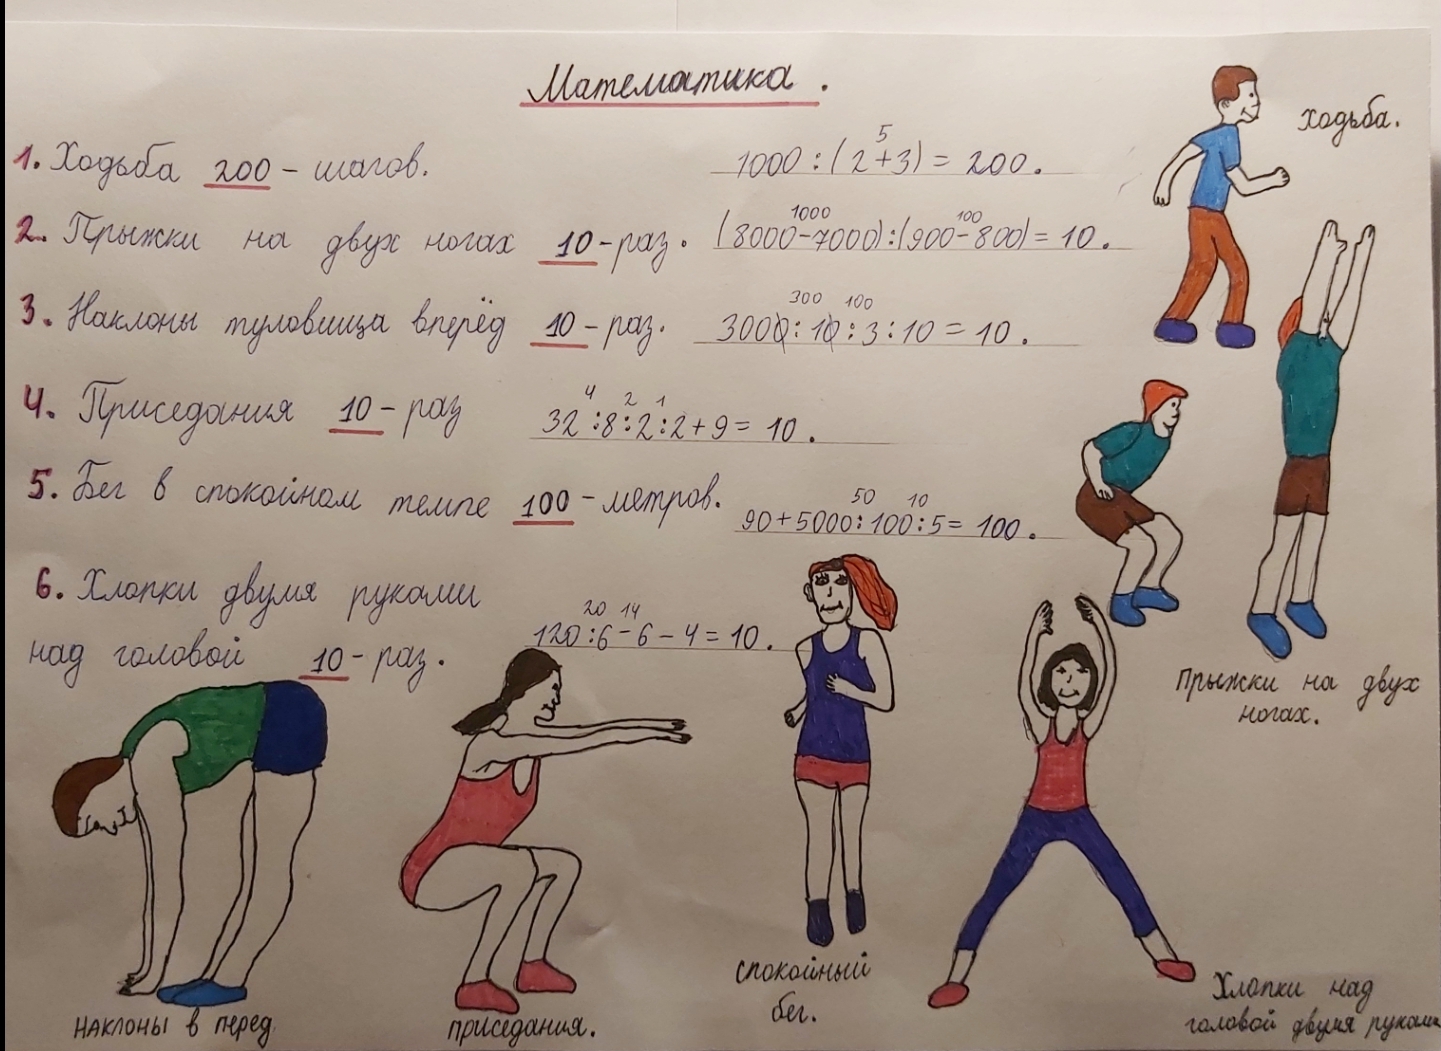 Математика.
1. Ходьба 200 - шагов.
5
1000 : (2+3) = 200.
2. Прыжки на двух ногах 10 - раз.
1000 100
(8000-7000):(900-800)= 10.
3. Наклоны туловища вперёд 10 - раз.
300 100
3000:10:3:10 = 10.
4. Приседания 10 - раз
4 2 1
32:8:2:2+9= 10.
5. Бег в спокойном темпе 100 - метров.
50 10
90+5000:100:5= 100.
6. Хлопки двумя руками
над головой 10 - раз.
20 14
120:6-6-4= 10.
Ходьба.
Прыжки на двух
ногах.
Наклоны в перед
приседания.
спокойный
бег.
Хлопки над
головой двумя руками